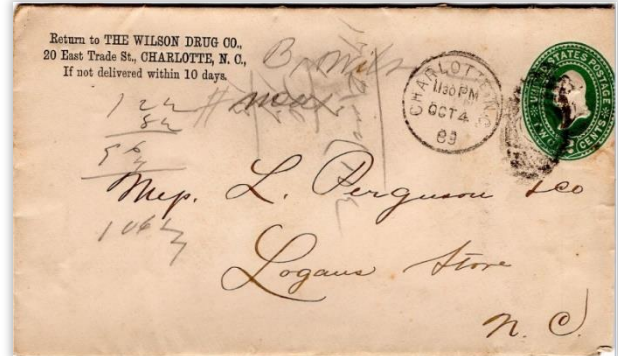 Return to THE WILSON DRUG CO.,
20 East Trade St., CHARLOTTE, N. C.,
If not delivered within 10 days.
CHARLOTTE, N.C.
1130 PM
OCT 4
89
UNITED STATES POSTAGE
TWO CENTS
B. Wils
Mess. L. Ferguson & Co
Logans Store
N. C.